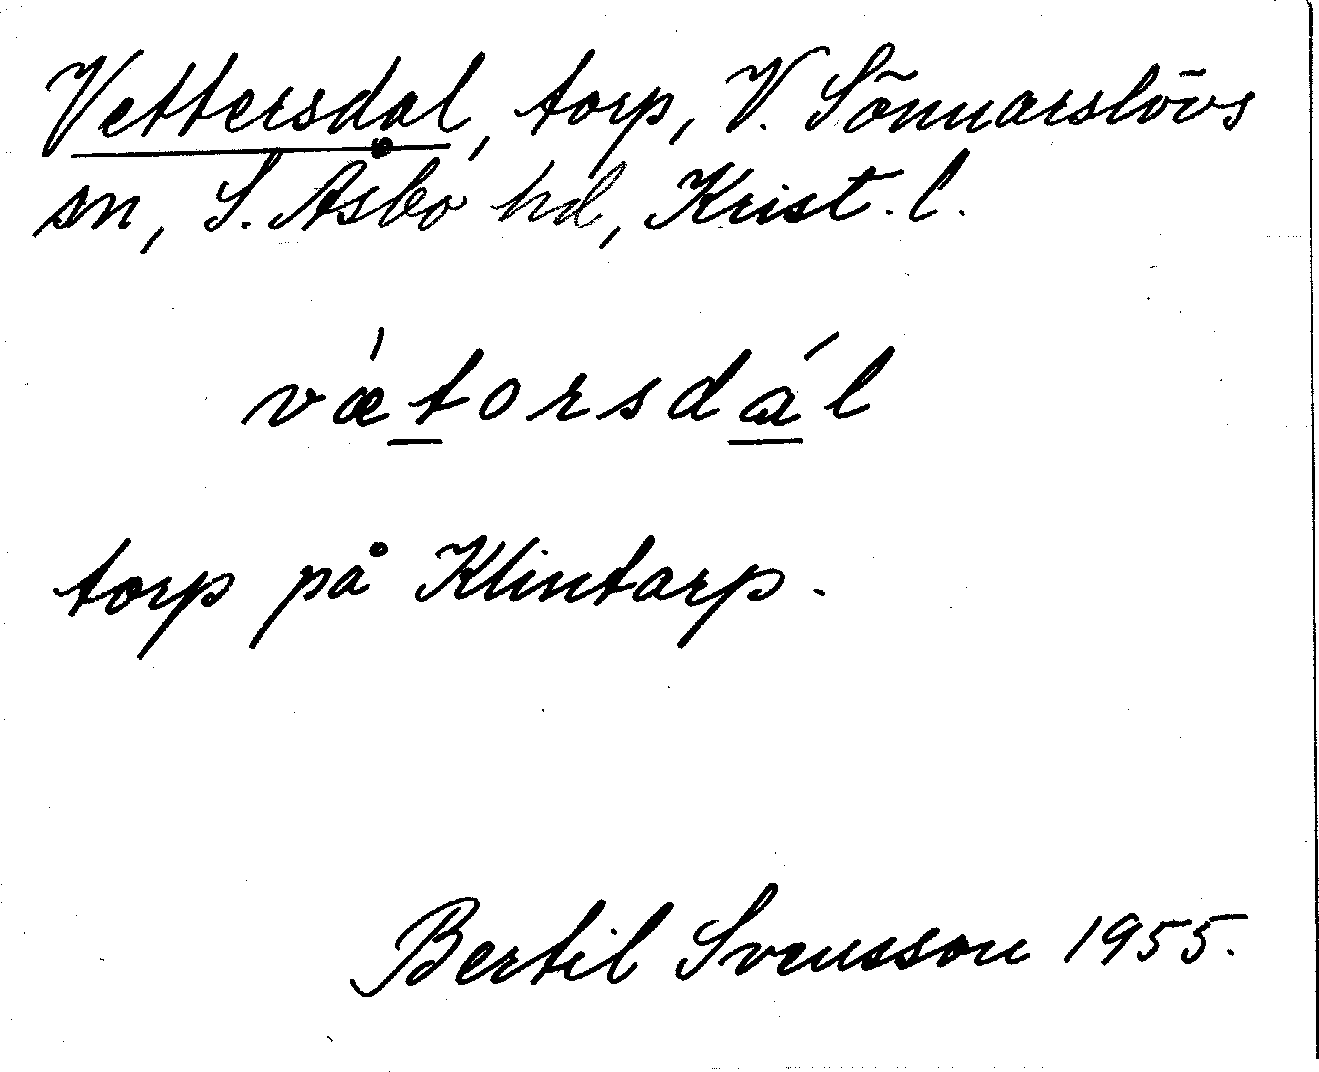 Vettersdal, torp, V. Sönnarslövs
sn, S. Åsbo hd, Krist. l.
væ̀torsdál
torp på Klintarp.
Bertil Svensson 1955.